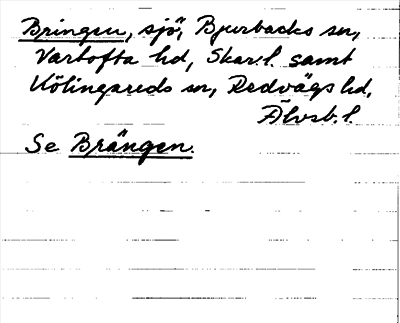 Bringen, sjö, Bjurbacks sn,
Vartofta hd, Skar.l. samt
Kölingareds sn, Redvägs hd,
Älvsb.l.
Se Brängen.